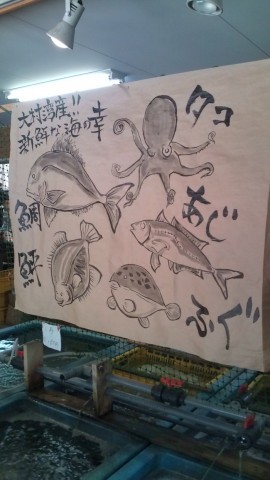 大村湾産!!
新鮮な海の幸
タコ
鯛
あじ
鮃
ふぐ